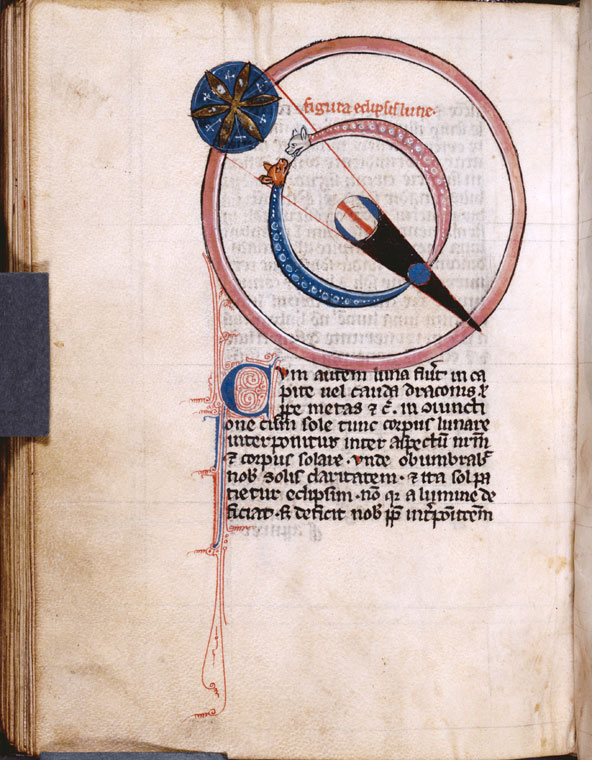 figura eclipsis lune.
Cum autem luna fu'it in ca
pite vel cauda draconis ł
ꝓpe metas ⁊ c̄. in ↄiuncti
one cum sole tunc corpus lunare
interponitur inter aspectū nr̄m
⁊ corpus solare. vnde obumbrab'
nob' solis claritatem. ⁊ ita sol pa
tietur eclipsim. nō qr a lumine de
ficiat. sꝫ deficit nob' ꝓp̄ int'pōitōem